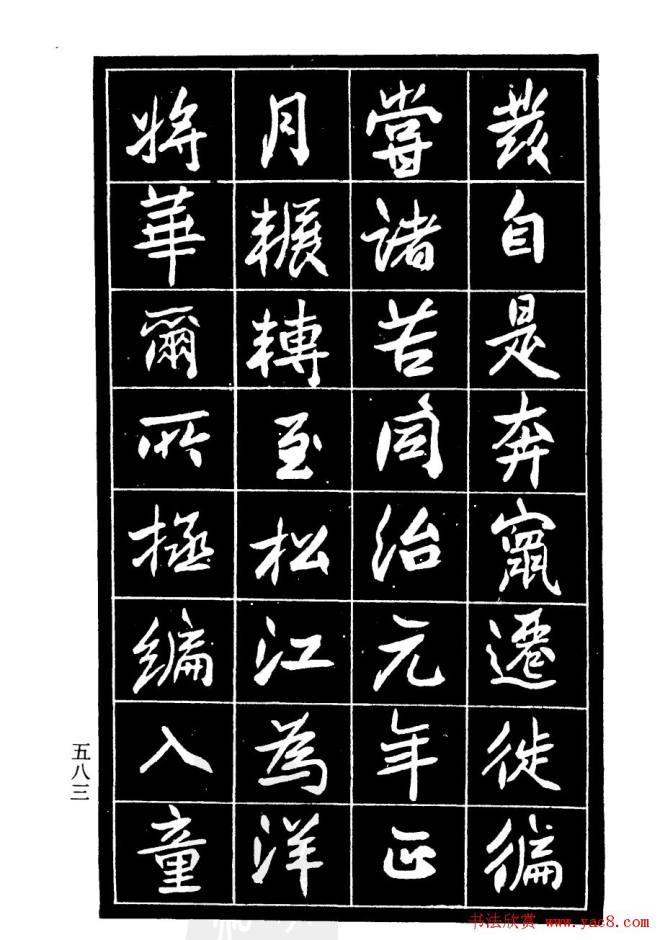 發自是奔竄遷徙徧
嘗諸苦同治元年正
月輾轉至松江為洋
將華爾所拯編入童
五八三
书法欣赏 www.yac8.com